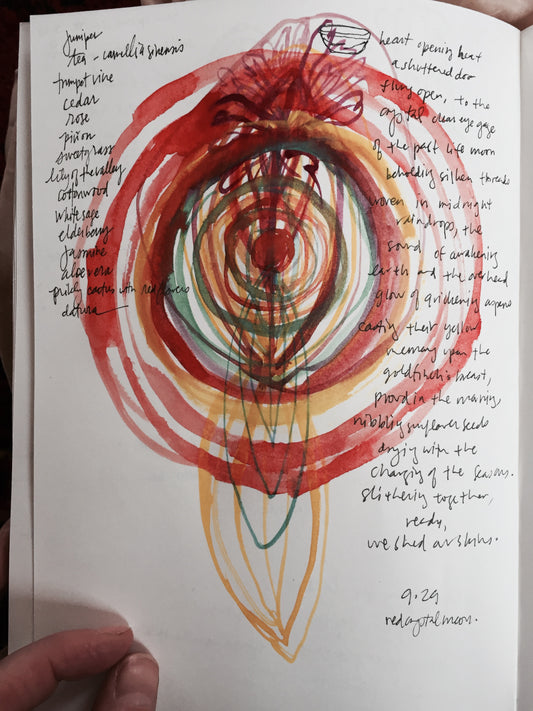 juniper
tea - camellia sinensis
trumpet vine
cedar
rose
piñon
sweetgrass
lily of the valley
cottonwood
white sage
elderberry
jasmine
aloe vera
prickly cactus with red flowers
datura
heart opening beat
a shuttered door
flung open, to the
crystal clear eye gaze
of the past life moon
beholding silken threads
woven in midnight
raindrops, the
sound of awakening
earth and the overhead
glow of quickening aspens
casting their yellow
memory upon the
goldfinch's breast,
proud in the morning,
nibbling sunflower seeds
drying with the
changing of the seasons.
slithering together,
ready,
we shed our skins.
9.29
red crystal moon.